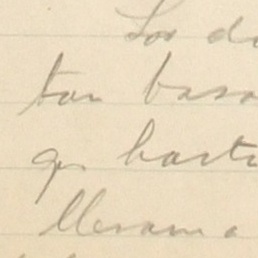 Los do
tan basa
qu hasta
llevam a